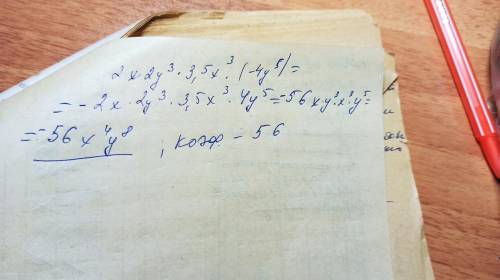 2x·2y³·3,5x³·(-4y⁵)=
=-2x·2y³·3,5x³·4y⁵=-56xy³·x³·y⁵=
=-56x⁴y⁸, коэф - 56